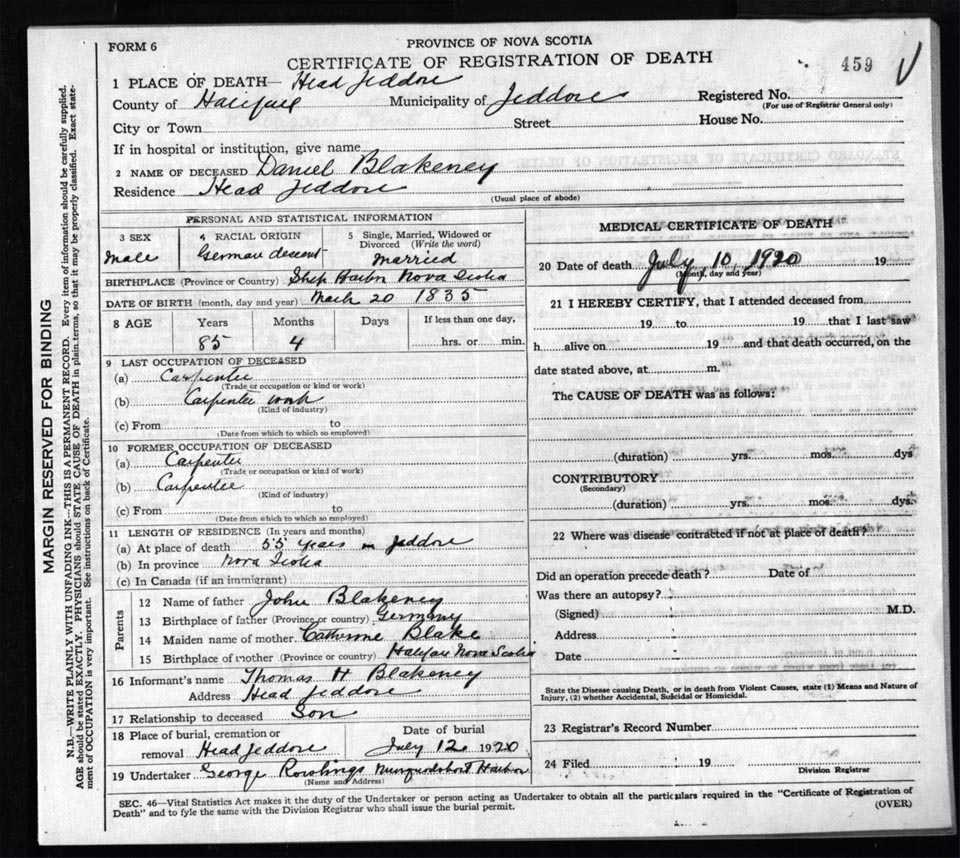 FORM 6
PROVINCE OF NOVA SCOTIA
CERTIFICATE OF REGISTRATION OF DEATH
459
1 PLACE OF DEATH— Head Jeddore
County of Halifax Municipality of Jeddore Registered No.
(For use of Registrar General only)
City or Town Street House No.
If in hospital or institution, give name
2 NAME OF DECEASED Daniel Blakeney
Residence Head Jeddore
(Usual place of abode)
PERSONAL AND STATISTICAL INFORMATION
3 SEX
Male
4 RACIAL ORIGIN
German descent
5 Single, Married, Widowed or Divorced (Write the word)
married
BIRTHPLACE (Province or Country) Ship Harbor Nova Scotia
DATE OF BIRTH (month, day and year) Mach 20 1835
8 AGE Years Months Days If less than one day,
85 4 hrs. or min.
9 LAST OCCUPATION OF DECEASED
(a) Carpenter
(Trade or occupation or kind or work)
(b) Carpenter work
(Kind of industry)
(c) From to
(Date from which to which so employed)
10 FORMER OCCUPATION OF DECEASED
(a) Carpenter
(Trade or occupation or kind of work)
(b) Carpenter
(Kind of industry)
(c) From to
(Date from which to which so employed)
11 LENGTH OF RESIDENCE (In years and months)
(a) At place of death 55 years in Jeddore
(b) In province Nova Scotia
(c) In Canada (if an immigrant)
Parents
12 Name of father John Blakeney
13 Birthplace of father (Province or country) Germany
14 Maiden name of mother Catherine Blake
15 Birthplace of mother (Province or country) Halifax Nova Scotia
16 Informant's name Thomas H Blakeney
Address Head Jeddore
17 Relationship to deceased Son
18 Place of burial, cremation or removal Head Jeddore
Date of burial
July 12 1920
19 Undertaker George Rowlings Harbor
(Name and Address)
MEDICAL CERTIFICATE OF DEATH
20 Date of death July 10 1920 19
(Month, day and year)
21 I HEREBY CERTIFY, that I attended deceased from
19 to 19 that I last saw
h alive on 19 and that death occurred, on the
date stated above, at m.
The CAUSE OF DEATH was as follows:
(duration) yrs. mos. dys
CONTRIBUTORY
(Secondary)
(duration) yrs. mos. dys.
22 Where was disease contracted if not at place of death?
Did an operation precede death? Date of
Was there an autopsy?
(Signed) M.D.
Address
Date
State the Disease causing Death, or in death from Violent Causes, state (1) Means and Nature of
Injury, (2) whether Accidental, Suicidal or Homicidal.
23 Registrar's Record Number
24 Filed 19
Division Registrar
SEC. 46—Vital Statistics Act makes it the duty of the Undertaker or person acting as Undertaker to obtain all the particulars required in the "Certificate of Registration of
Death" and to fyle the same with the Division Registrar who shall issue the burial permit.
(OVER)
MARGIN RESERVED FOR BINDING
N.B.—WRITE PLAINLY WITH UNFADING INK—THIS IS A PERMANENT RECORD. Every item of information should be carefully supplied.
AGE should be stated EXACTLY. PHYSICIANS should STATE CAUSE OF DEATH in plain terms, so that it may be properly classified. Exact state-
ment of OCCUPATION is very important. See instructions on back of Certificate.